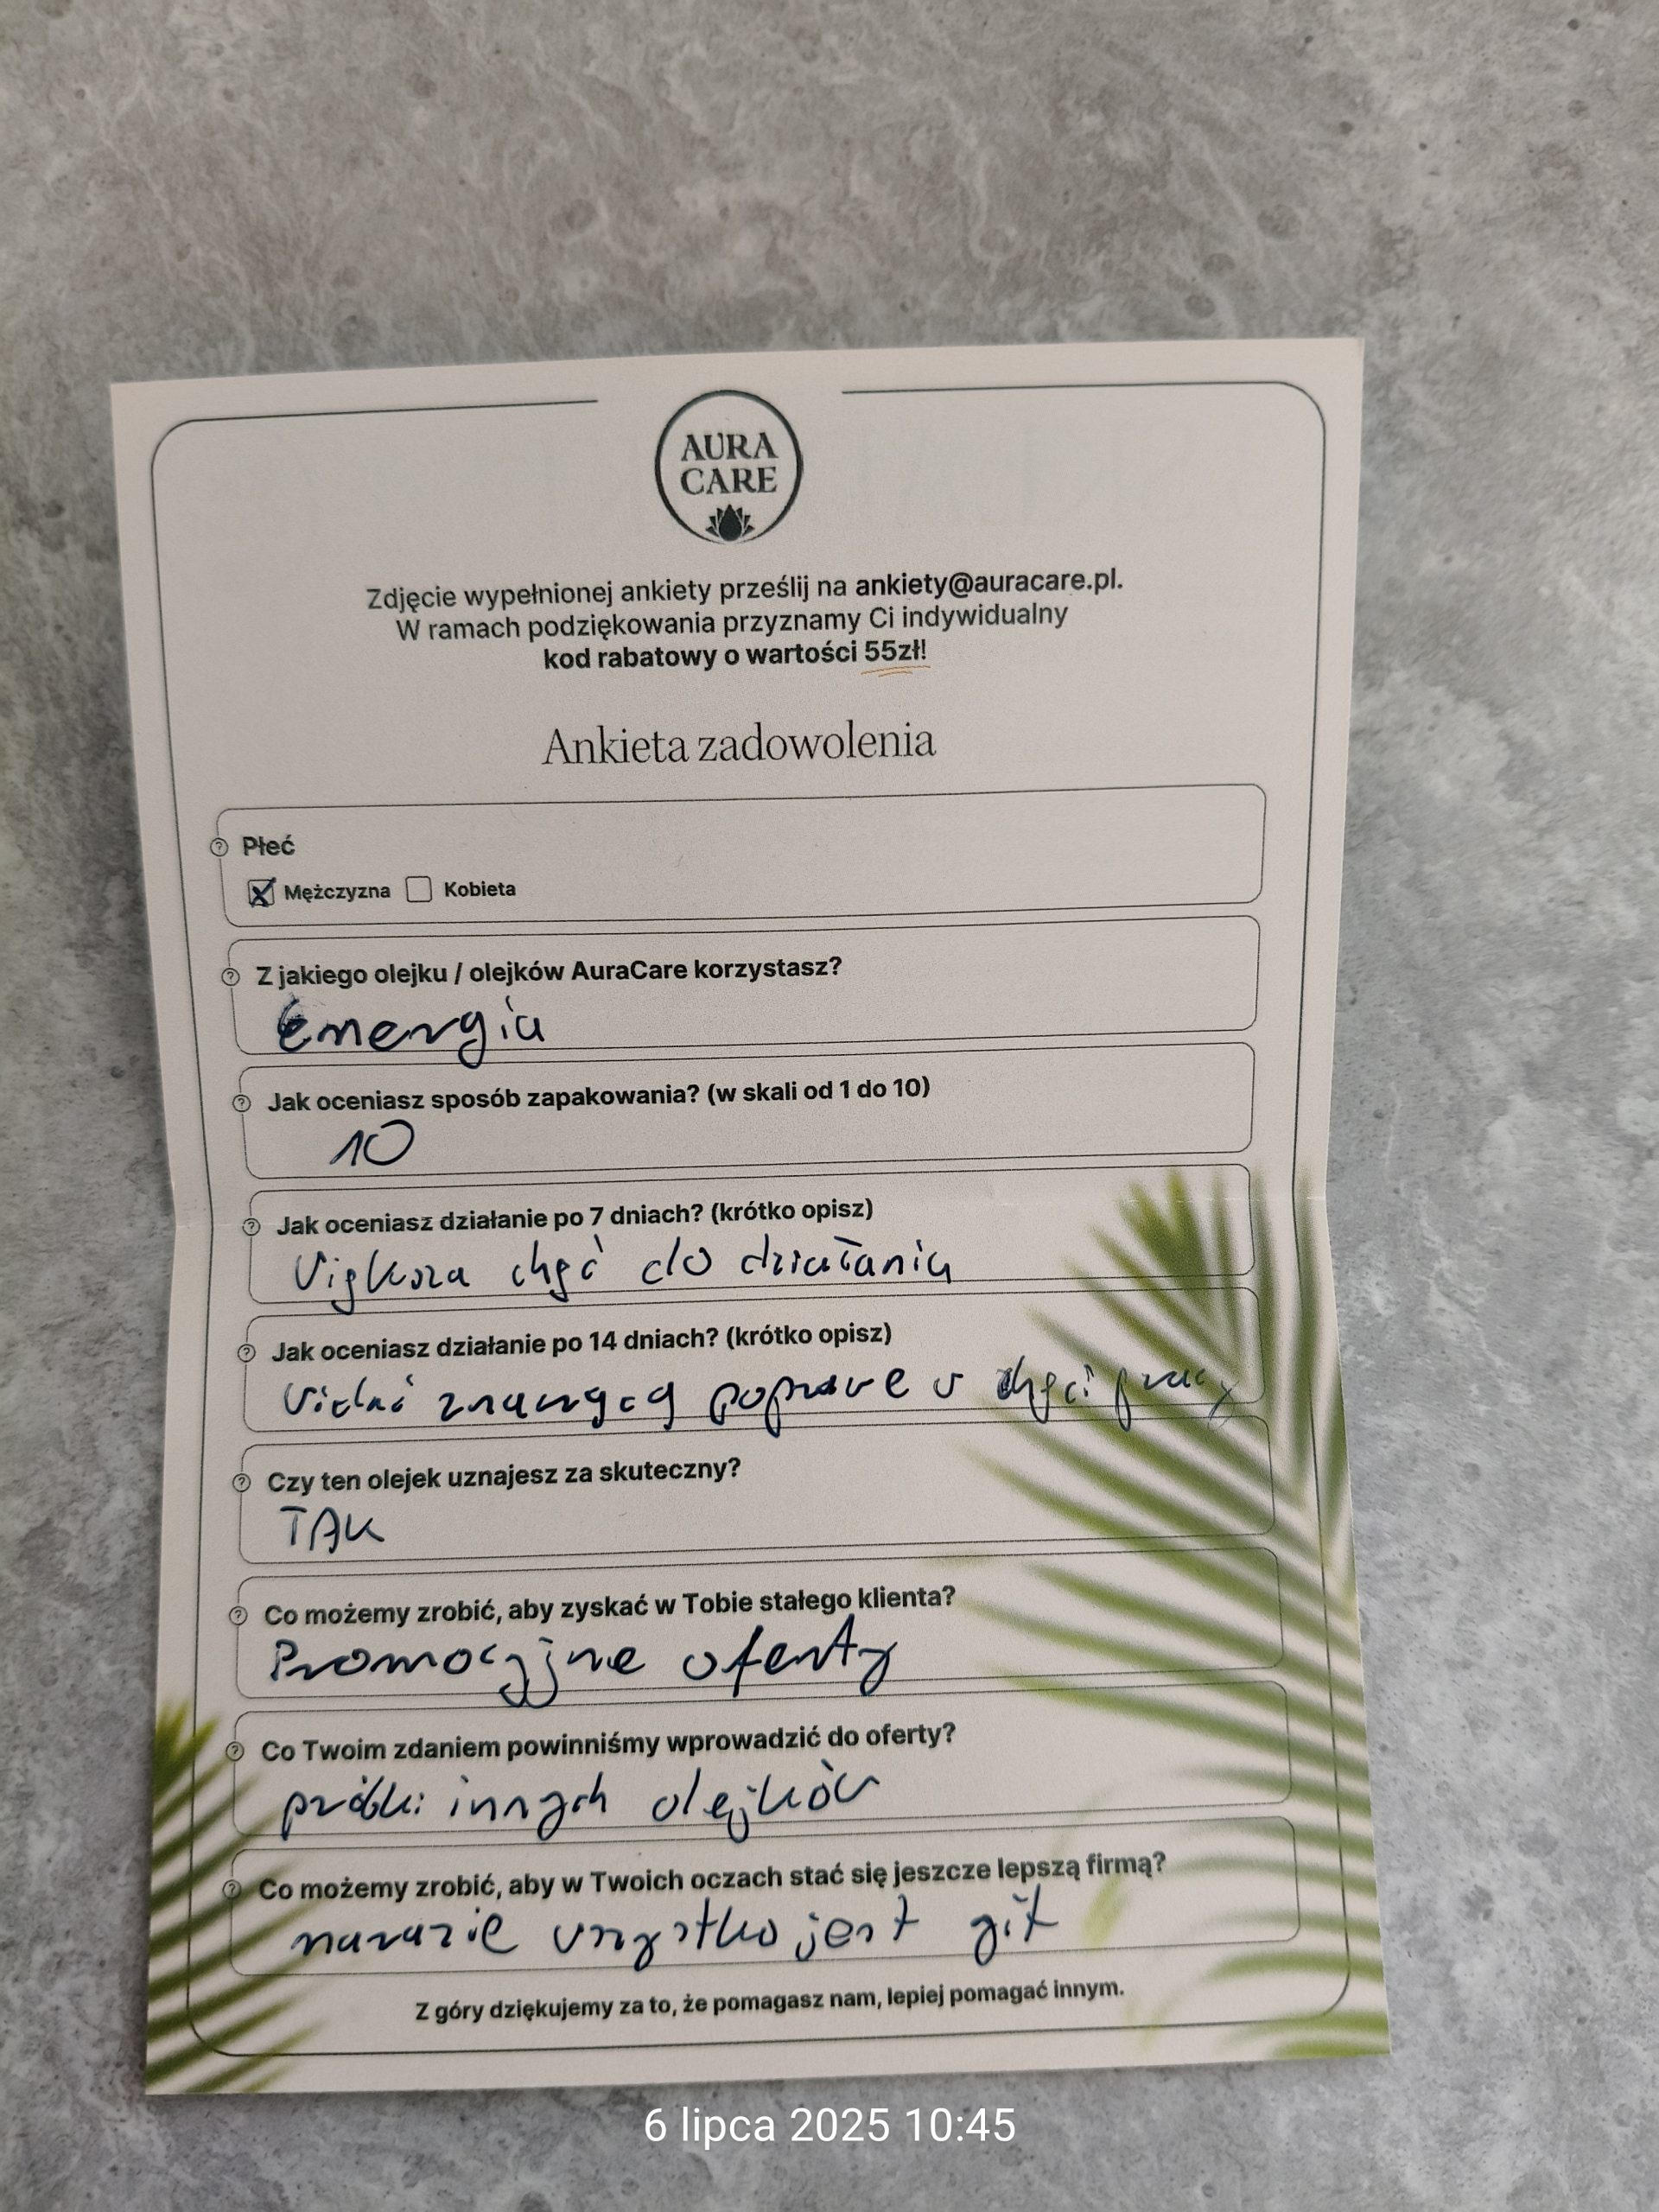 AURA
CARE
Zdjęcie wypełnionej ankiety prześlij na ankiety@auracare.pl.
W ramach podziękowania przyznamy Ci indywidualny
kod rabatowy o wartości 55zł!
Ankieta zadowolenia
Płeć
Mężczyzna Kobieta
Z jakiego olejku / olejków AuraCare korzystasz?
Energia
Jak oceniasz sposób zapakowania? (w skali od 1 do 10)
10
Jak oceniasz działanie po 7 dniach? (krótko opisz)
Większa chęć do działania
Jak oceniasz działanie po 14 dniach? (krótko opisz)
Widać znaczącą poprawe w chęci pracy
Czy ten olejek uznajesz za skuteczny?
TAK
Co możemy zrobić, aby zyskać w Tobie stałego klienta?
Promocyjne oferty
Co Twoim zdaniem powinniśmy wprowadzić do oferty?
próbki innych olejków
Co możemy zrobić, aby w Twoich oczach stać się jeszcze lepszą firmą?
narazie wszystko jest git
Z góry dziękujemy za to, że pomagasz nam, lepiej pomagać innym.
6 lipca 2025 10:45